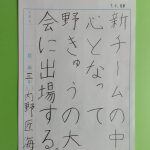 新チームの中
心となって
野きゅうの大
会に出場する。
三 内野 匠海